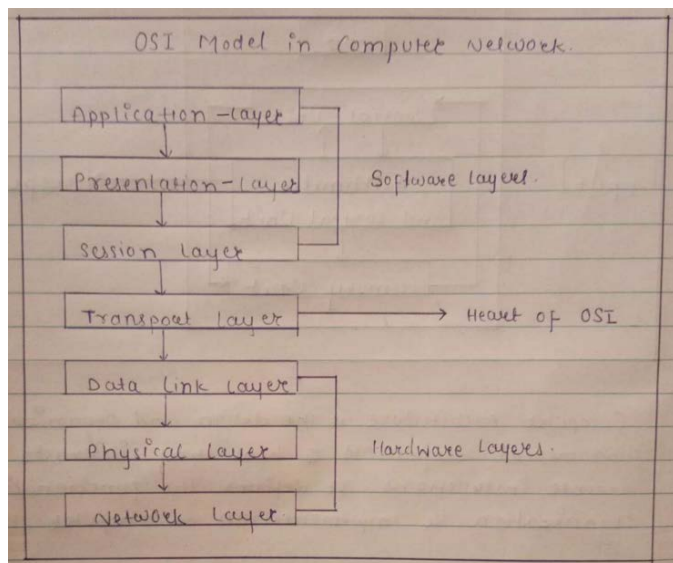 OSI Model in Computer Network.
Application-Layer
Presentation-Layer
Software Layers.
Session Layer
Transport Layer
Heart of OSI
Data Link Layer
Physical Layer
Hardware Layers.
Network Layer